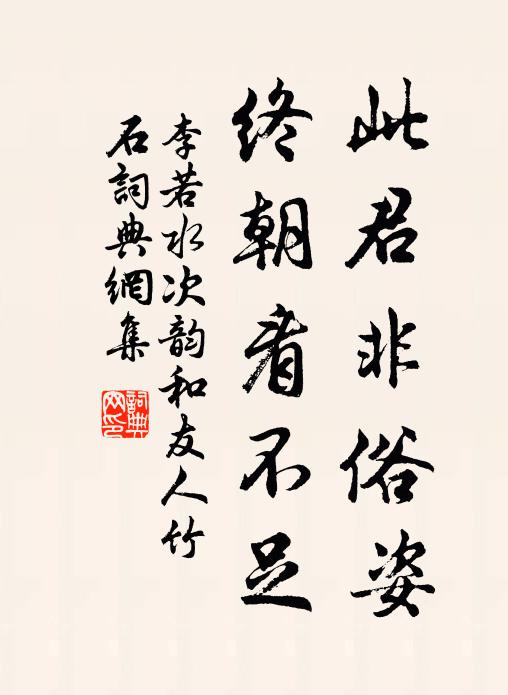 此君非俗姿
终朝看不足
李若水次韵和友人竹
石词典網集
词典网印